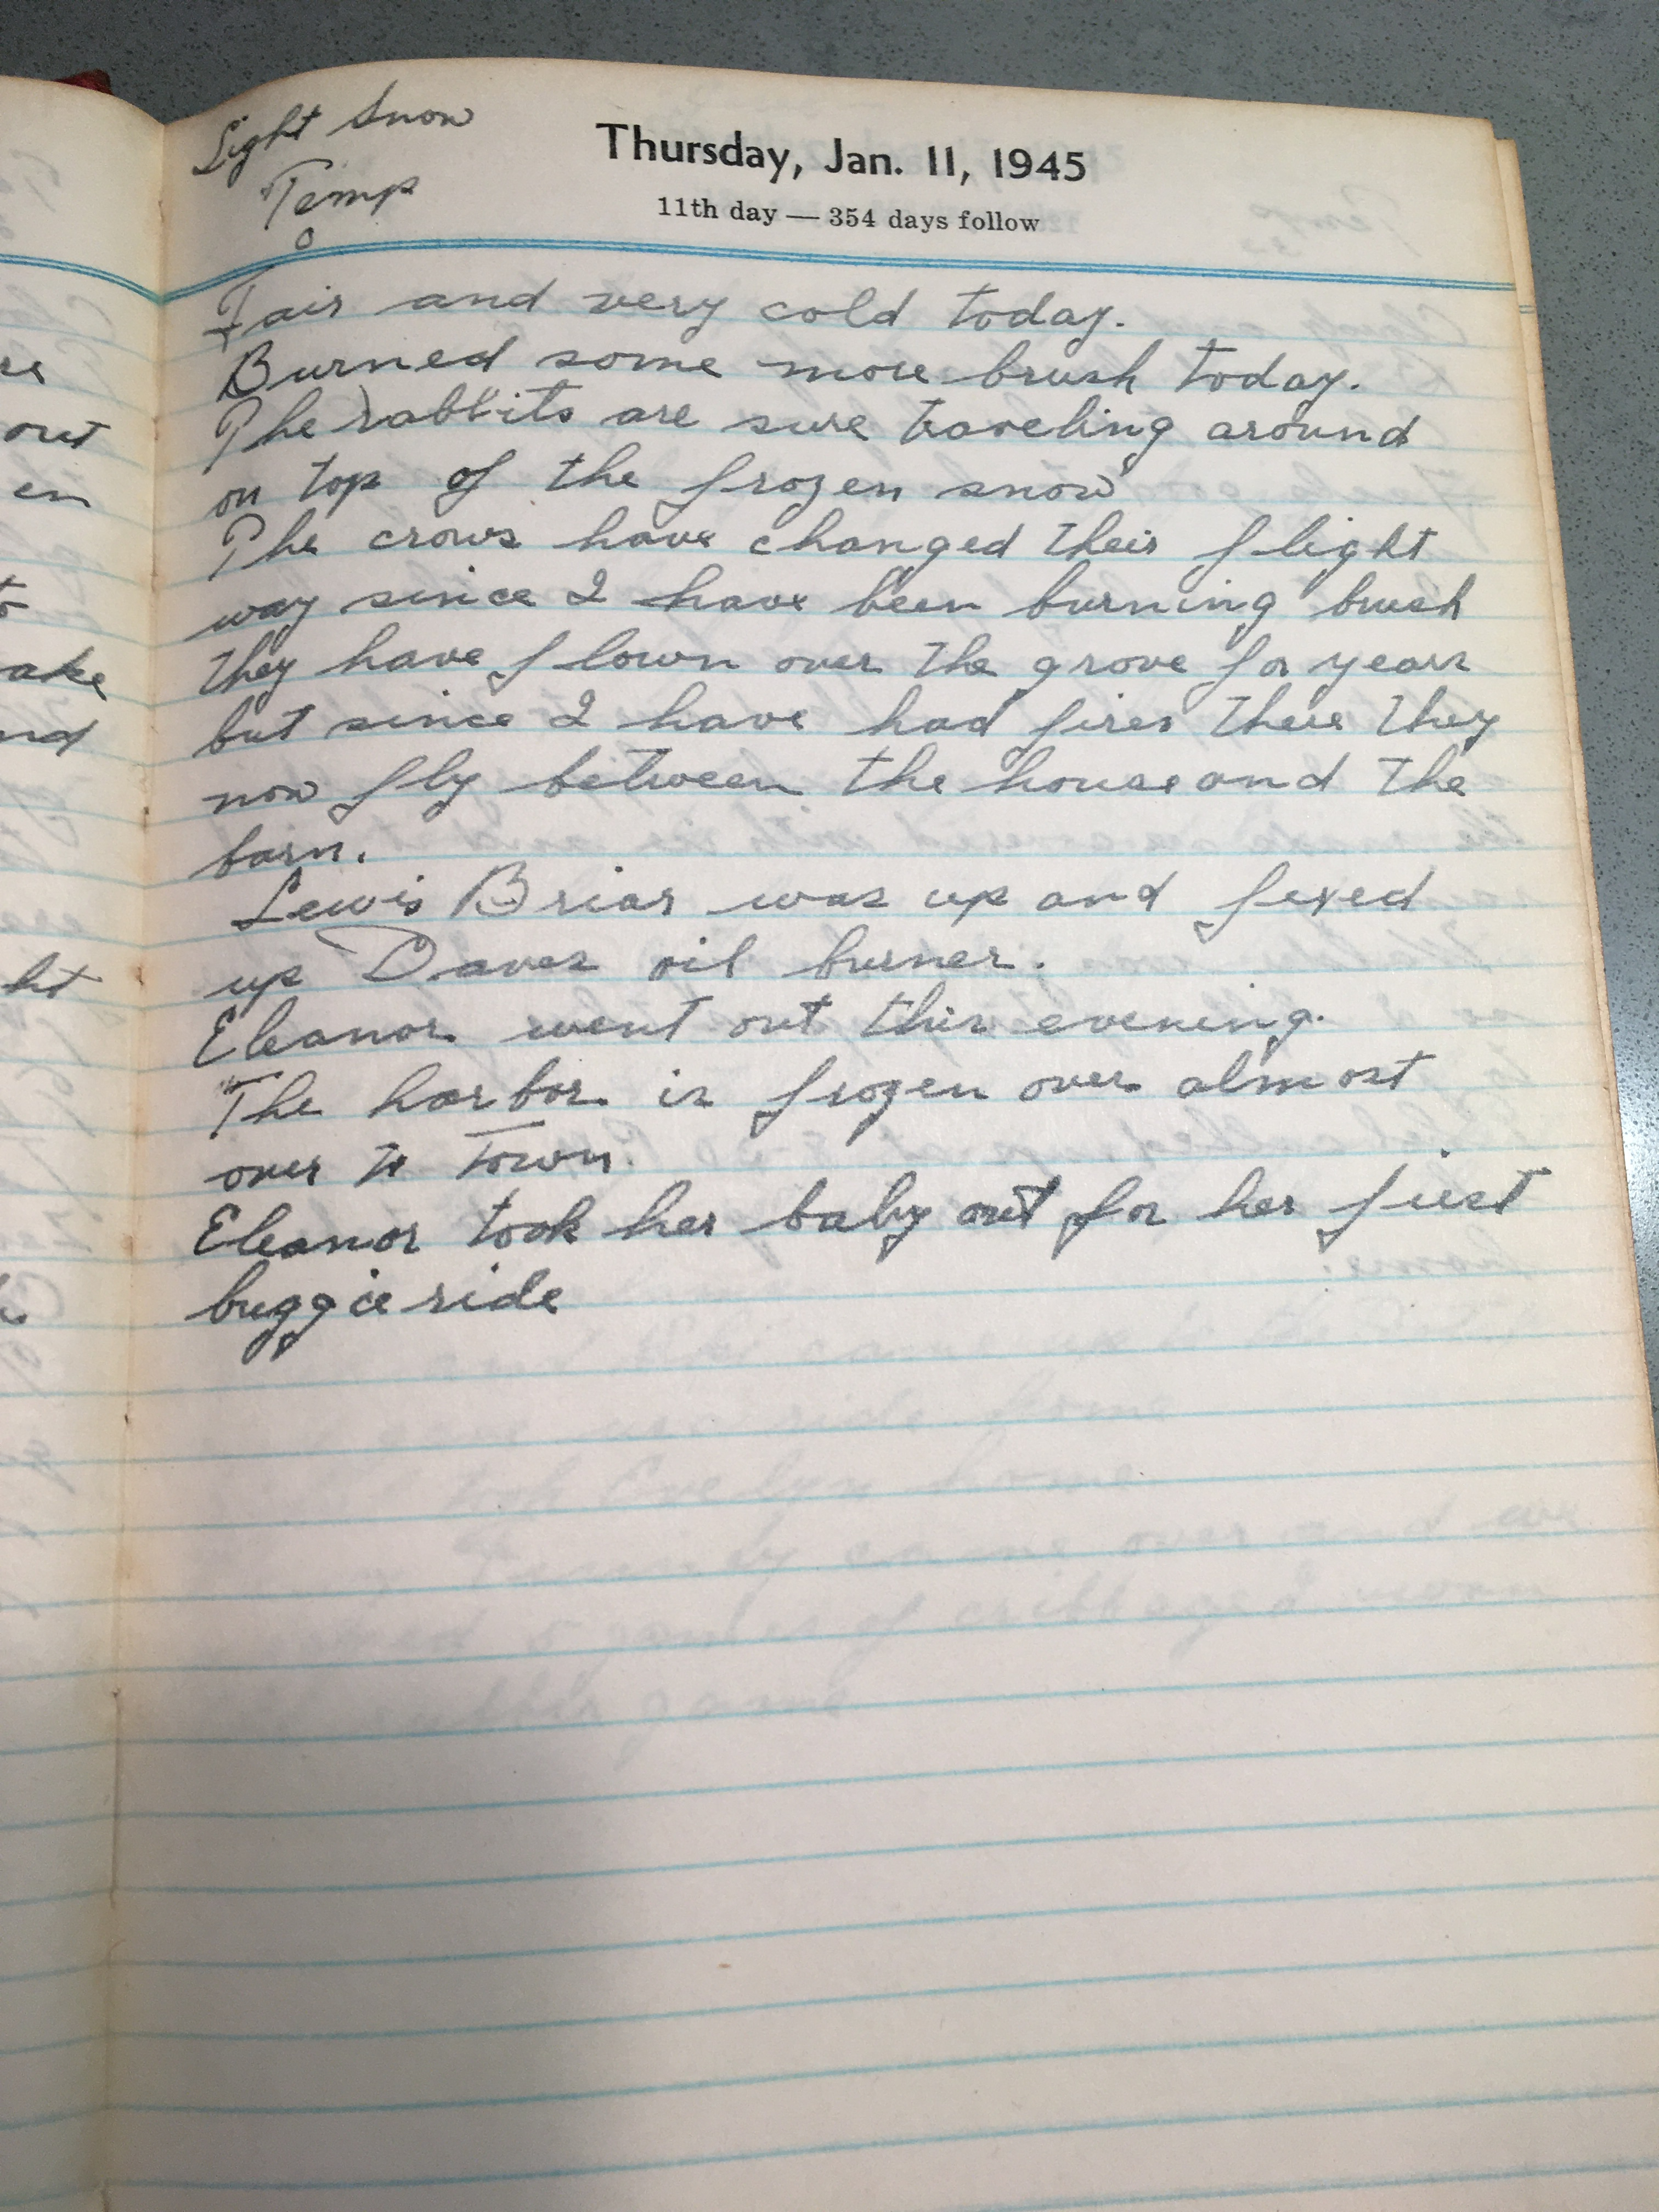 Light Snow
Temp
0
Thursday, Jan. 11, 1945
11th day — 354 days follow
Fair and very cold today.
Burned some more brush today.
The rabbits are sure traveling around
on top of the frozen snow
The crows have changed their flight
way since I have been burning brush
they have flown over the grove for years
but since I have had fires there they
now fly between the house and the
barn.
Lewis Briar was up and fixed
up Daves oil burner.
Eleanor went out this evening.
The harbor is frozen over almost
over to Town.
Eleanor took her baby out for her first
buggie ride
out
en
ake